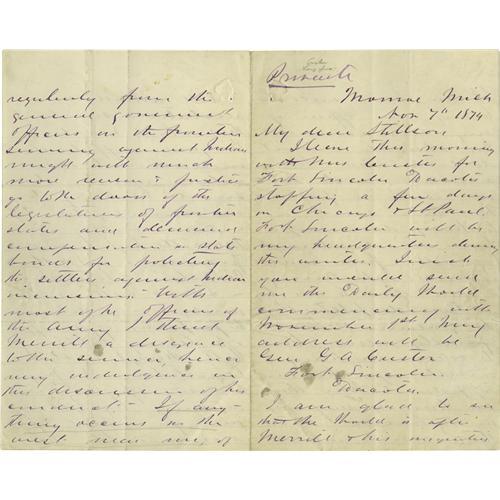 Private
Monroe Mich
Nov 7th 1874
My dear Stillson
I leave this morning
with Mrs Custer for
Fort Lincoln Dacota
stopping a few days
in Chicago & St Paul.
Fort Lincoln will be
my headquarters during
the winter. I wish
you would send
me the Daily World
commencing with
November 1st. My
address will be
Gen G A Custer
Fort Lincoln
Dacota.
I am glad to see
that the World is after
Merrill & his
regularly from the
general government
officers on the frontier
serving against Indians
might with much
more reason & justice
go to the doors of the
legislatures of frontier
states and demand
compensation in state
bonds for protecting
the settlers against Indian
incursions. With
most of the officers of
the Army I
Merrill a disgrace
to the service, hence
my indulgence in
this discussion of his
conduct. If any-
thing occurs in the
west near me, of